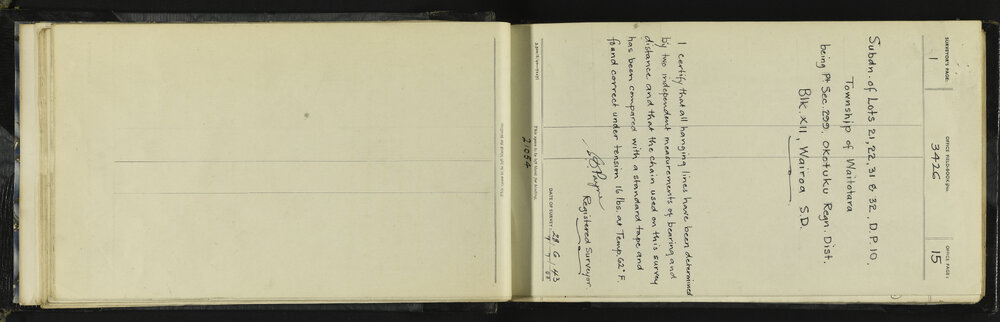 SURVEYOR'S PAGE:
1
OFFICE FIELD-BOOK No.
3426
OFFICE PAGE:
15
Subdn. of Lots 21, 22, 31 & 32, D.P. 10,
Township of Waitotara
being Pt Sec. 299, Okotuku Regn. Dist.
Blk. XII, Wairoa S.D.
I certify that all hanging lines have been determined
by two independent measurements of bearing and
distance and that the chain used on this survey
has been compared with a standard tape and
found correct under tension 16 lbs. at Temp. 62° F.
Payne
Registered Surveyor.
This space is to be left blank for binding.
21054
DATE OF SURVEY:
28 / 6 / 43